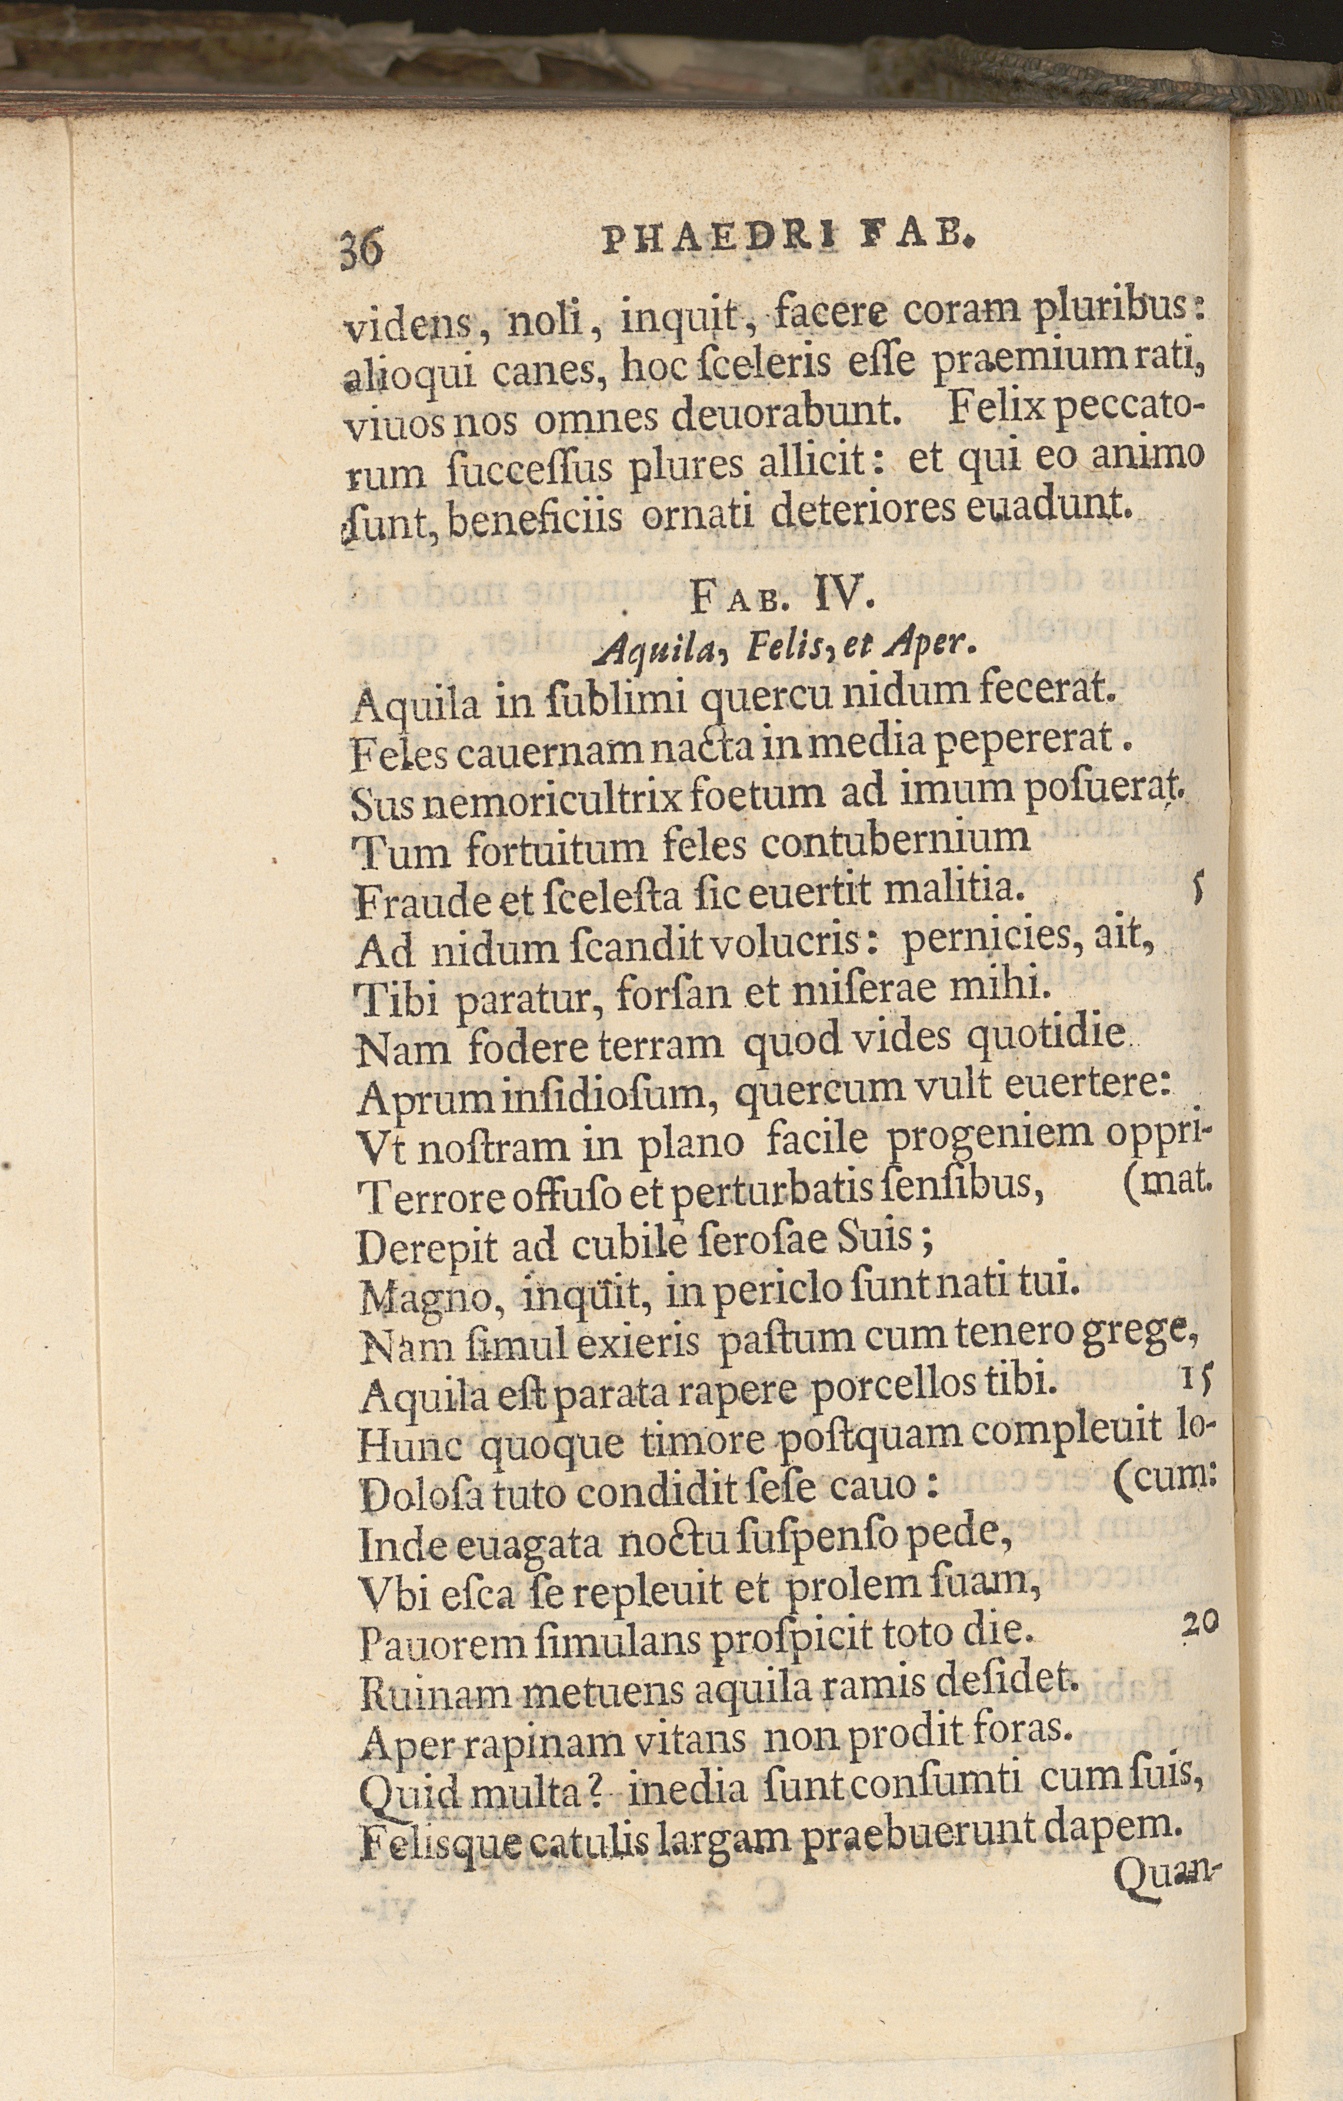 36 PHAEDRI FAB.
videns, noli, inquit, facere coram pluribus:
alioqui canes, hoc ſceleris eſſe praemium rati,
viuos nos omnes deuorabunt. Felix peccato-
rum ſucceſſus plures allicit: et qui eo animo
ſunt, beneficiis ornati deteriores euadunt.
FAB. IV.
Aquila, Felis, et Aper.
Aquila in ſublimi quercu nidum fecerat.
Feles cauernam nacta in media pepererat.
Sus nemoricultrix foetum ad imum poſuerat.
Tum fortuitum feles contubernium
Fraude et ſceleſta ſic euertit malitia. 5
Ad nidum ſcandit volucris: pernicies, ait,
Tibi paratur, forſan et miſerae mihi.
Nam fodere terram quod vides quotidie
Aprum inſidioſum, quercum vult euertere:
Vt noſtram in plano facile progeniem oppri-
Terrore offuſo et perturbatis ſenſibus, (mat.
Derepit ad cubile ſeroſae Suis;
Magno, inquit, in periclo ſunt nati tui.
Nam ſimul exieris paſtum cum tenero grege,
Aquila eſt parata rapere porcellos tibi. 15
Hunc quoque timore poſtquam compleuit lo-
Doloſa tuto condidit ſeſe cauo: (cum:
Inde euagata noctu ſuſpenſo pede,
Vbi eſca ſe repleuit et prolem ſuam,
Pauorem ſimulans proſpicit toto die. 20
Ruinam metuens aquila ramis deſidet.
Aper rapinam vitans non prodit foras.
Quid multa? inedia ſunt conſumti cum ſuis,
Felisque catulis largam praebuerunt dapem.
Quan-